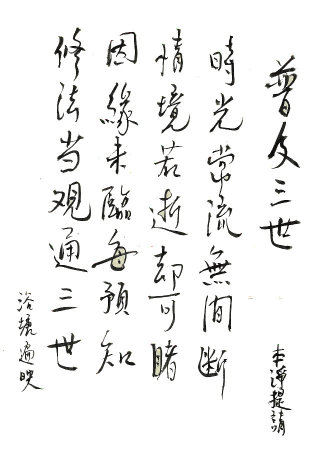 普及三世
本淨提請
時光常流無間斷
情境若逝却可睹
因緣未臨每預知
修法当观通三世
浴塘遍映